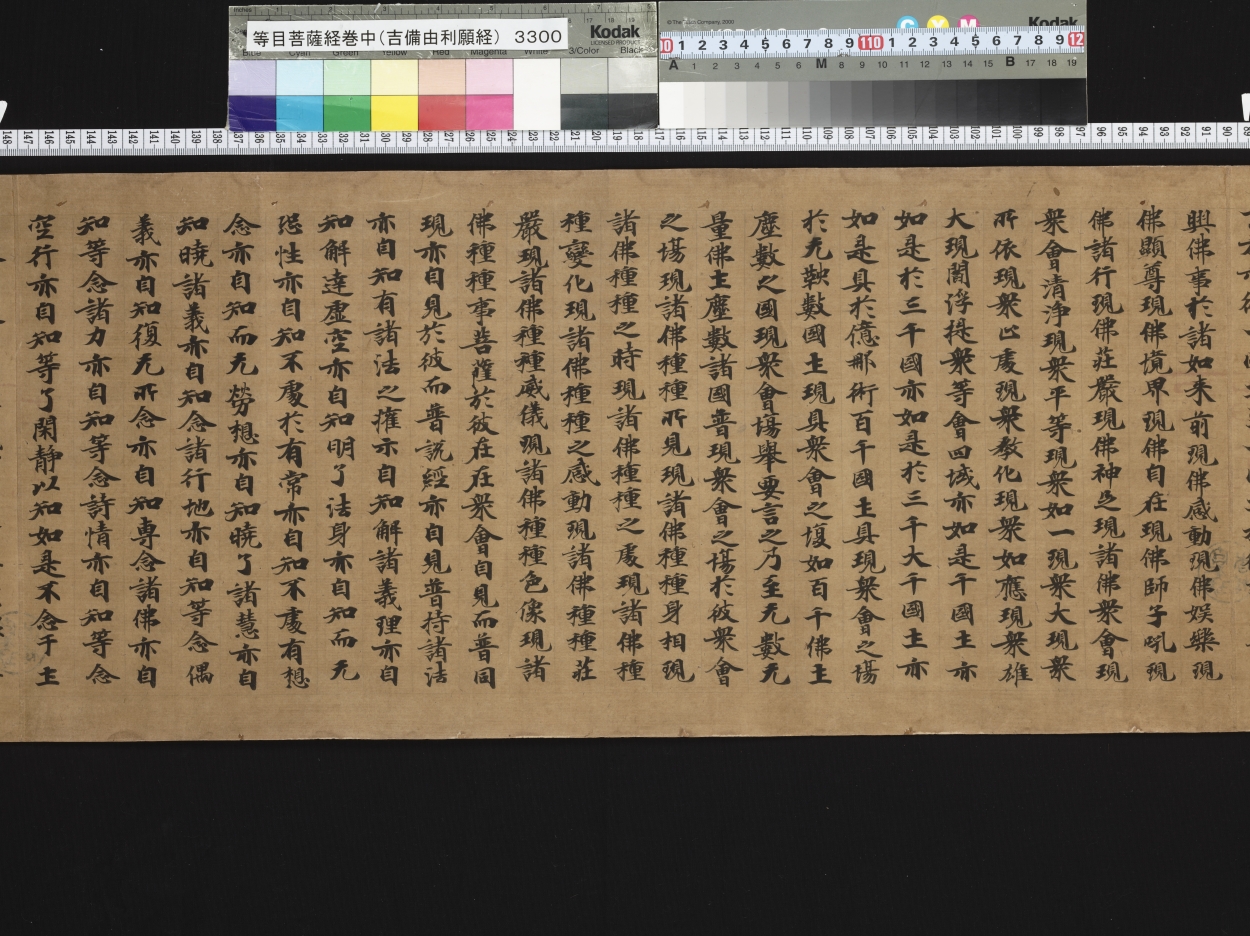 等目菩薩経巻中(吉備由利願経) 3300
Kodak
LICENSED PRODUCT
Kodak
興佛事於諸如来前現佛感動現佛娯樂現
佛顯尊現佛境界現佛自在現佛師子吼現
佛諸行現佛莊嚴現佛神足現諸佛衆會現
衆會清淨現衆平等現衆如一現衆大現衆
所依現衆止處現衆教化現衆如應現衆雄
大現閻浮提衆等會四域亦如是千國土亦
如是於三千國亦如是於三千大千國土亦
如是具於億那術百千國土具現衆會之場
於无鞅數國土現具衆會之場如百千佛土
塵數之國現衆會場舉要言之乃至无數无
量佛土塵數諸國普現衆會之場於彼衆會
之場現諸佛種種所見現諸佛種種身相現
諸佛種種之時現諸佛種種之處現諸佛種
種變化現諸佛種種之感動現諸佛種種莊
嚴現諸佛種種威儀現諸佛種種色像現諸
佛種種事菩薩於彼在在衆會自見而普同
現亦自見於彼而普説經亦自見普持諸法
亦自知有諸法之攉亦自知解諸義理亦自
知解達虚空亦自知明了法身亦自知而无
性亦自知不處於有常亦自知不處有想
念亦自知而无勞想亦自知曉了諸慧亦自
知曉諸義亦自知念諸行地亦自知等念偶
義亦自知復无所念亦自知專念諸佛亦自
知等念諸力亦自知等念詩情亦自知等念
空行亦自知等了閑静以知如是不念千土